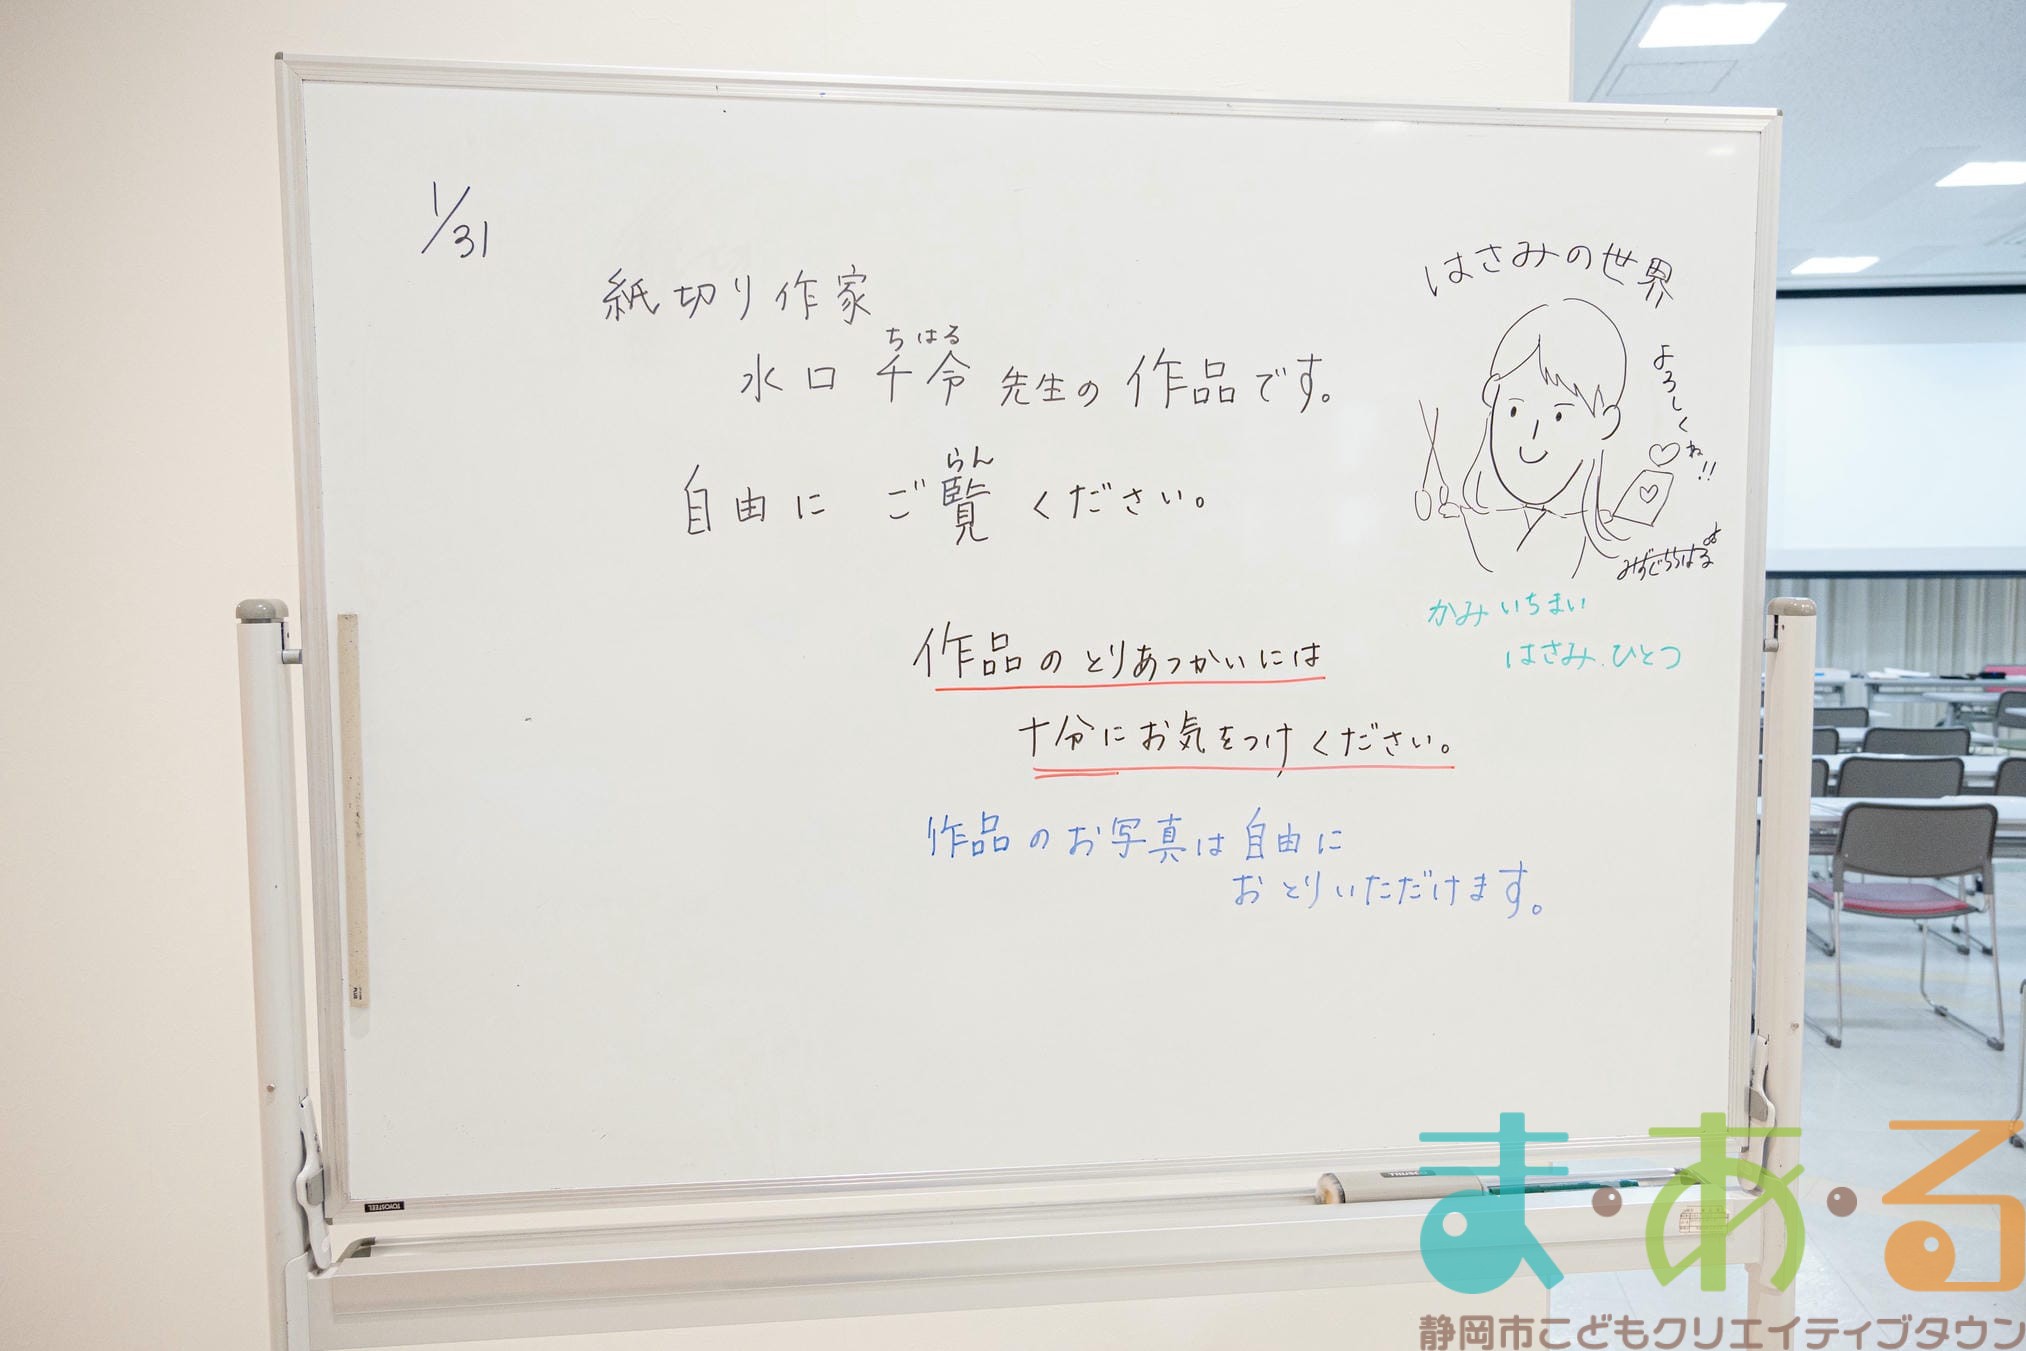 1/31
紙切り作家
ちはる
水口 千令 先生の 作品です。
らん
自由に ご覧 ください。
作品のとりあつかいには
十分にお気をつけください。
作品のお写真は自由に
おとりいただけます。
はさみの世界
よろしくね!!
みずぐちちはる
かみ いちまい
はさみ ひとつ
TOYOSTEEL
PLUS
ま・あ・る
静岡市こどもクリエイティブタウン